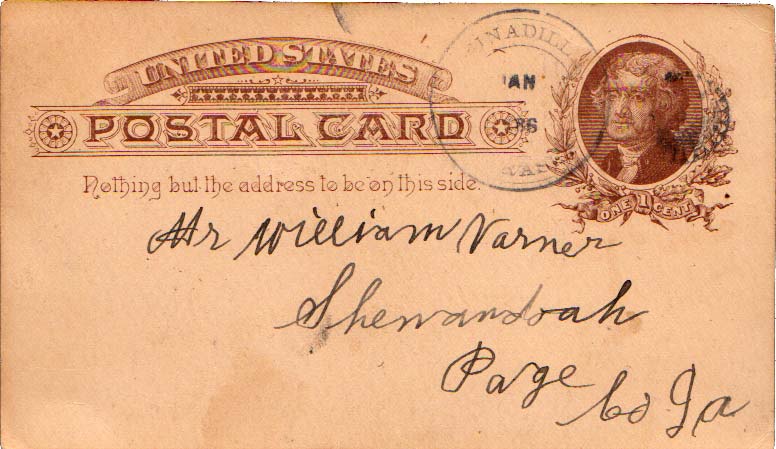 UNITED STATES
POSTAL CARD
Nothing but the address to be on this side.
ONE 1 CENT
Mr William Varner
Shenandoah
Page
Co Ia